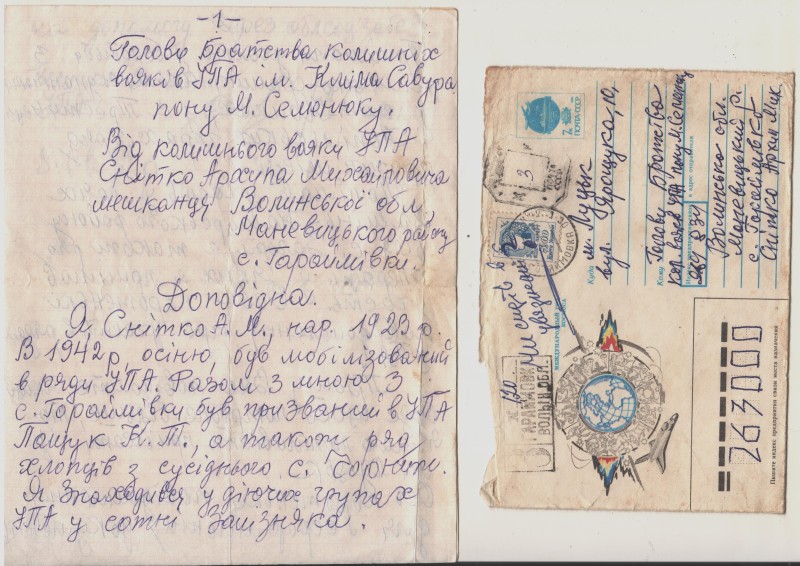 -1-
Голові братства колишніх
вояків УПА ім. Клима Савура
пону М. Семенюку.
Від колишнього вояку УПА
Снітко Архипа Михайловича
мешканця Волинської обл
Маневицького району
с. Гораймівки.
Доповідна.
Я Снітко А. М., нар. 1923 р.
В 1942 р, осіню, був мобілізований
в ряди УПА. Разом з мною з
с. Гораймівки був призваний в УПА
Пащук К. Т., а також ряд
хлопців з сусіднього с. Чорниж.
Я знаходився у діючих групах
УПА у сотні Залізняка.
7к ПОЧТА СССР
3
Куда
м. Луцьк
вул. Ярощука, 10,
Кому
Голові Братства
кол. вояків УПА пону М. Семенюку
Волинська обл.
Маневицький р.
с. Гораймівка
Снітко Архип Мих
Чи сидів в
увязнені
МЕЖДУНАРОДНЫЙ
ВОЛЫН ОБЛ.
263000
Пишите индекс предприятия связи места назначения